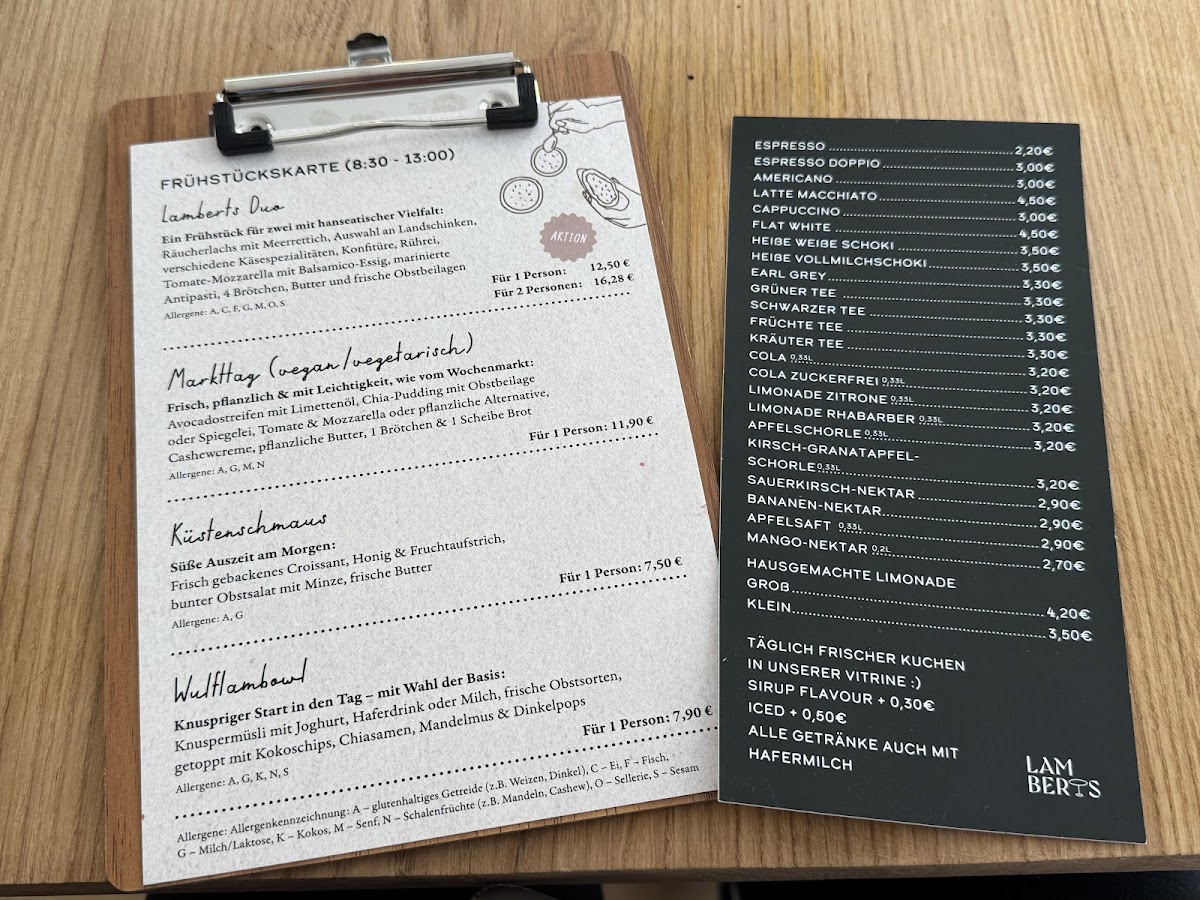 FRÜHSTÜCKSKARTE (8:30 - 13:00)
Lamberts Duo
Ein Frühstück für zwei mit hanseatischer Vielfalt:
Räucherlachs mit Meerrettich, Auswahl an Landschinken,
verschiedene Käsespezialitäten, Konfitüre, Rührei,
Tomate-Mozzarella mit Balsamico-Essig, marinierte
Antipasti, 4 Brötchen, Butter und frische Obstbeilagen
Allergene: A, C, F, G, M, O, S
AKTION
Für 1 Person: 12,50 €
Für 2 Personen: 16,28 €
Markttag (vegan/vegetarisch)
Frisch, pflanzlich & mit Leichtigkeit, wie vom Wochenmarkt:
Avocadostreifen mit Limettenöl, Chia-Pudding mit Obstbeilage
oder Spiegelei, Tomate & Mozzarella oder pflanzliche Alternative,
Cashewcreme, pflanzliche Butter, 1 Brötchen & 1 Scheibe Brot
Allergene: A, G, M, N
Für 1 Person: 11,90 €
Küstenschmaus
Süße Auszeit am Morgen:
Frisch gebackenes Croissant, Honig & Fruchtaufstrich,
bunter Obstsalat mit Minze, frische Butter
Allergene: A, G
Für 1 Person: 7,50 €
Wulflambowl
Knuspriger Start in den Tag – mit Wahl der Basis:
Knuspermüsli mit Joghurt, Haferdrink oder Milch, frische Obstsorten,
getoppt mit Kokoschips, Chiasamen, Mandelmus & Dinkelpops
Allergene: A, G, K, N, S
Für 1 Person: 7,90 €
Allergene: Allergenkennzeichnung: A – glutenhaltiges Getreide (z.B. Weizen, Dinkel), C – Ei, F – Fisch,
G – Milch/Laktose, K – Kokos, M – Senf, N – Schalenfrüchte (z.B. Mandeln, Cashew), O – Sellerie, S – Sesam
ESPRESSO 2,20€
ESPRESSO DOPPIO 3,00€
AMERICANO 3,00€
LATTE MACCHIATO 4,50€
CAPPUCCINO 3,00€
FLAT WHITE 4,50€
HEIßE WEIßE SCHOKI 3,50€
HEIßE VOLLMILCHSCHOKI 3,50€
EARL GREY 3,30€
GRÜNER TEE 3,30€
SCHWARZER TEE 3,30€
FRÜCHTE TEE 3,30€
KRÄUTER TEE 3,30€
COLA 0,33L 3,20€
COLA ZUCKERFREI 0,33L 3,20€
LIMONADE ZITRONE 0,33L 3,20€
LIMONADE RHABARBER 0,33L 3,20€
APFELSCHORLE 0,33L 3,20€
KIRSCH-GRANATAPFEL-
SCHORLE 0,33L 3,20€
SAUERKIRSCH-NEKTAR 2,90€
BANANEN-NEKTAR 2,90€
APFELSAFT 0,33L 2,90€
MANGO-NEKTAR 0,2L 2,70€
HAUSGEMACHTE LIMONADE
GROß 4,20€
KLEIN 3,50€
TÄGLICH FRISCHER KUCHEN
IN UNSERER VITRINE :)
SIRUP FLAVOUR + 0,30€
ICED + 0,50€
ALLE GETRÄNKE AUCH MIT
HAFERMILCH
LAM
BERTS